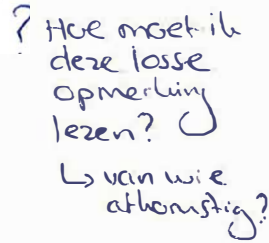 ? Hoe moet ik
deze losse
opmerking
lezen?
↳ van wie
afkomstig?